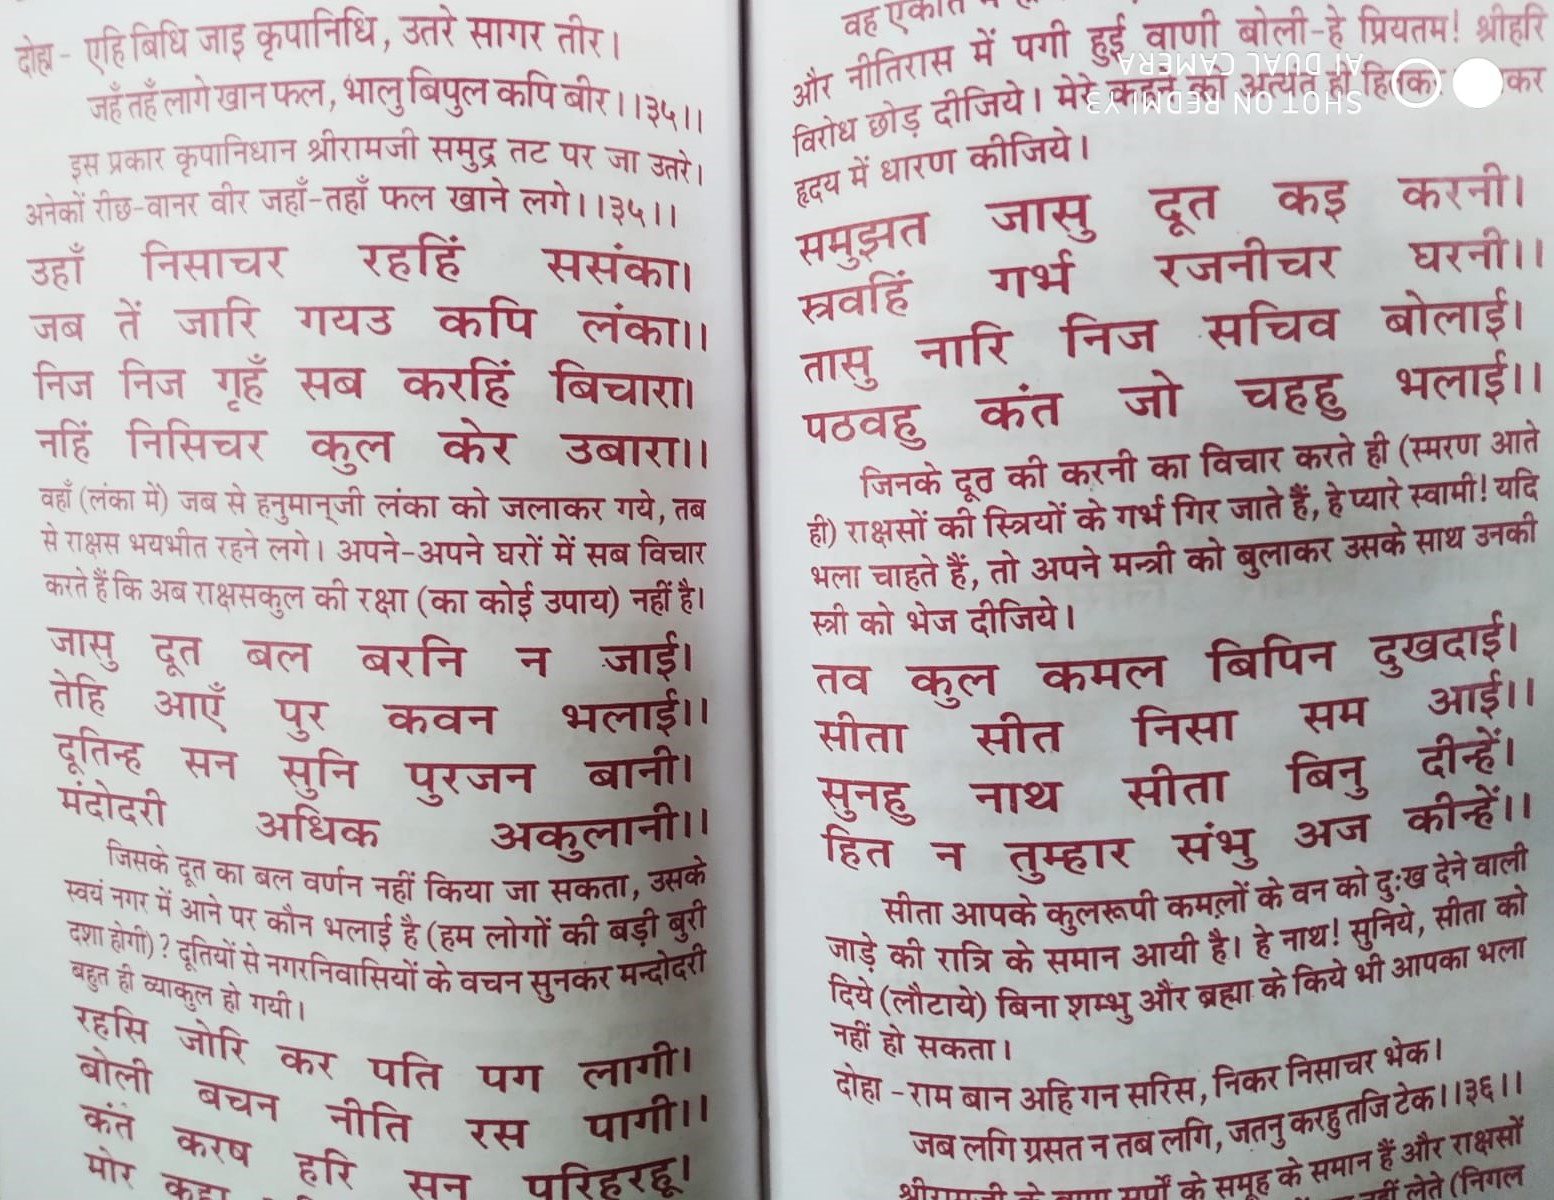 दोहा - एहि बिधि जाइ कृपानिधि, उतरे सागर तीर।
जहँ तहँ लागे खान फल, भालु बिपुल कपि बीर।।३५।।
इस प्रकार कृपानिधान श्रीरामजी समुद्र तट पर जा उतरे।
अनेकों रीछ-वानर वीर जहाँ-तहाँ फल खाने लगे।।३५।।
उहाँ निसाचर रहहिं ससंका।
जब तें जारि गयउ कपि लंका।।
निज निज गृहँ सब करहिं बिचारा।
नहिं निसिचर कुल केर उबारा।।
वहाँ (लंका में) जब से हनुमान्‌जी लंका को जलाकर गये, तब
से राक्षस भयभीत रहने लगे। अपने-अपने घरों में सब विचार
करते हैं कि अब राक्षसकुल की रक्षा (का कोई उपाय) नहीं है।
जासु दूत बल बरनि न जाई।
तेहि आएँ पुर कवन भलाई।।
दूतिन्ह सन सुनि पुरजन बानी।
मंदोदरी अधिक अकुलानी।।
जिसके दूत का बल वर्णन नहीं किया जा सकता, उसके
स्वयं नगर में आने पर कौन भलाई है (हम लोगों की बड़ी बुरी
दशा होगी)? दूतियों से नगरनिवासियों के वचन सुनकर मन्दोदरी
बहुत ही व्याकुल हो गयी।
रहसि जोरि कर पति पग लागी।
बोली बचन नीति रस पागी।।
कंत करष हरि सन परिहरहू।
मोर कहा
वह एकांत में
और नीतिरास में पगी हुई वाणी बोली-हे प्रियतम! श्रीहरि
विरोध छोड़ दीजिये। मेरे कहने को अत्यंत ही हितकर कर
हृदय में धारण कीजिये।
समुझत जासु दूत कइ करनी।
स्त्रवहिं गर्भ रजनीचर घरनी।।
तासु नारि निज सचिव बोलाई।
पठवहु कंत जो चहहु भलाई।।
जिनके दूत की करनी का विचार करते ही (स्मरण आते
ही) राक्षसों की स्त्रियों के गर्भ गिर जाते हैं, हे प्यारे स्वामी! यदि
भला चाहते हैं, तो अपने मन्त्री को बुलाकर उसके साथ उनकी
स्त्री को भेज दीजिये।
तव कुल कमल बिपिन दुखदाई।
सीता सीत निसा सम आई।।
सुनहु नाथ सीता बिनु दीन्हें।
हित न तुम्हार संभु अज कीन्हें।।
सीता आपके कुलरूपी कमलों के वन को दुःख देने वाली
जाड़े की रात्रि के समान आयी है। हे नाथ! सुनिये, सीता को
दिये (लौटाये) बिना शम्भु और ब्रह्मा के किये भी आपका भला
नहीं हो सकता।
दोहा - राम बान अहि गन सरिस, निकर निसाचर भेक।
जब लगि ग्रसत न तब लगि, जतनु करहु तजि टेक।।३६।।
श्रीरामजी के बाण सर्पों के समूह के समान हैं और राक्षसों
नहीं लेते (निगल
SHOT ON REDMI Y3
AI DUAL CAMERA